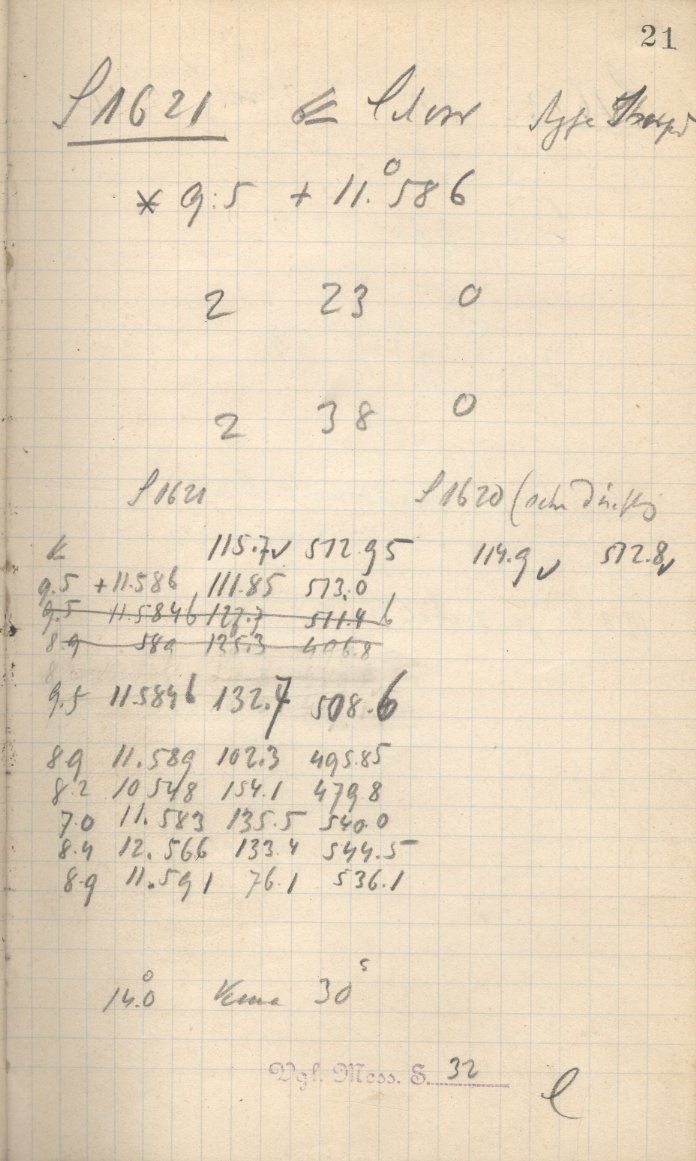 21
S1621
* 9.5 + 11.°586
2 23 0
2 38 0
S1621 S1620
115.7✓ 512.95 114.9✓ 512.8✓
9.5 +11.586 111.85 513.0
9.5 11.584b 127.7 511.4
8.9 589 135.3 496.8
9.5 11.584b 132.7 508.6
8.9 11.589 102.3 495.85
8.2 10.548 154.1 479.8
7.0 11.583 135.5 540.0
8.4 12.566 133.4 544.5
8.9 11.591 76.1 536.1
14.°0 30ˢ
Vgl. Mess. S. 32